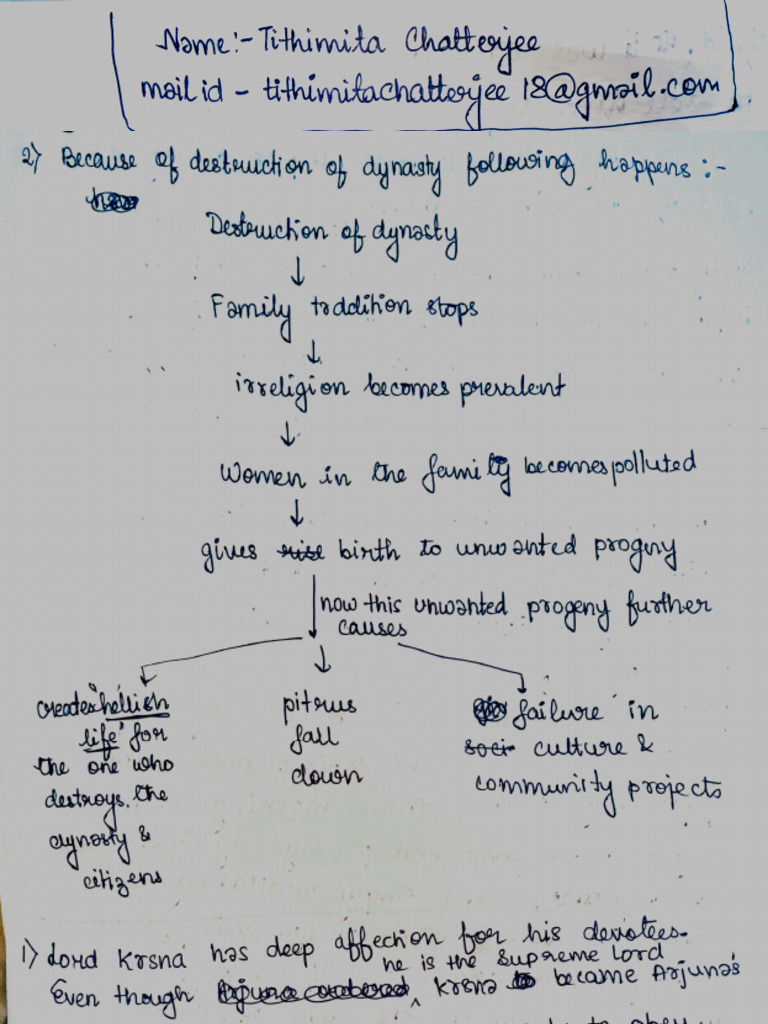 Name:- Tithimita Chatterjee
mail id - tithimitachatterjee18@gmail.com
2) Because of destruction of dynasty following happens:-
Destruction of dynasty
↓
Family tradition stops
↓
irreligion becomes prevalent
↓
Women in the family becomes polluted
↓
gives rise birth to unwanted progeny
now this unwanted progeny further
causes
creates "hellish
life" for
the one who
destroys the
dynasty &
citizens
pitrus
fall
down
failure in
soci- culture &
community projects
1) Lord Krsna has deep affection for his devotees.
he is the Supreme Lord
Even though Arjuna ordered ^ Krsna became Arjuna's
to obey